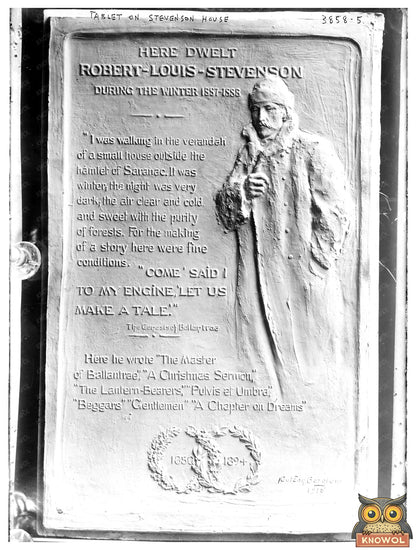 TABLET ON STEVENSON HOUSE
3858-5
HERE DWELT
ROBERT-LOUIS-STEVENSON
DURING THE WINTER 1887-1888
"I was walking in the verandah
of a small house outside the
hamlet of Saranac. It was
winter, the night was very
dark, the air clear and cold
and sweet with the purity
of forests. For the making
of a story here were fine
conditions. "COME' SAID I
TO MY ENGINE, 'LET US
MAKE A TALE.'"
The Genesis of Ballantrae
Here he wrote "The Master
of Ballantrae," "A Christmas Sermon,"
"The Lantern-Bearers," "Pulvis et Umbra,"
"Beggars" "Gentlemen" "A Chapter on Dreams"
1850 1894
KNOWOL